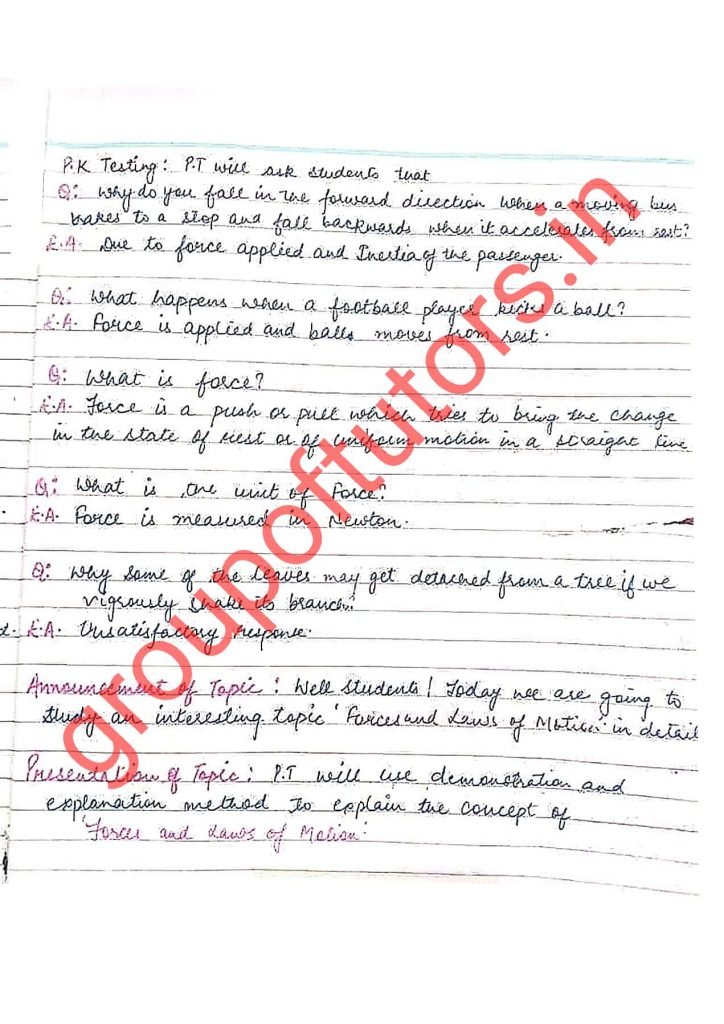 P.K Testing: P.T will ask students that
Q: Why do you fall in the forward direction when a moving bus
brakes to a stop and fall backwards when it accelerates from rest?
E.A. Due to force applied and Inertia of the passenger.
Q: What happens when a football player kicks a ball?
E.A. Force is applied and balls moves from rest.
Q: What is force?
E.A. Force is a push or pull which tries to bring the change
in the state of rest or of uniform motion in a straight line
Q: What is the unit of Force?
E.A. Force is measured in Newton.
Q: Why some of the leaves may get detached from a tree if we
vigrously shake its branch?
E.A. Unsatisfactory response.
Announcement of Topic: Well students! Today we are going to
study an interesting topic 'Forces and Laws of Motion' in detail
Presentation of Topic: P.T will use demonstration and
explanation method to explain the concept of
'Forces and Laws of Motion'
groupoftutors.in